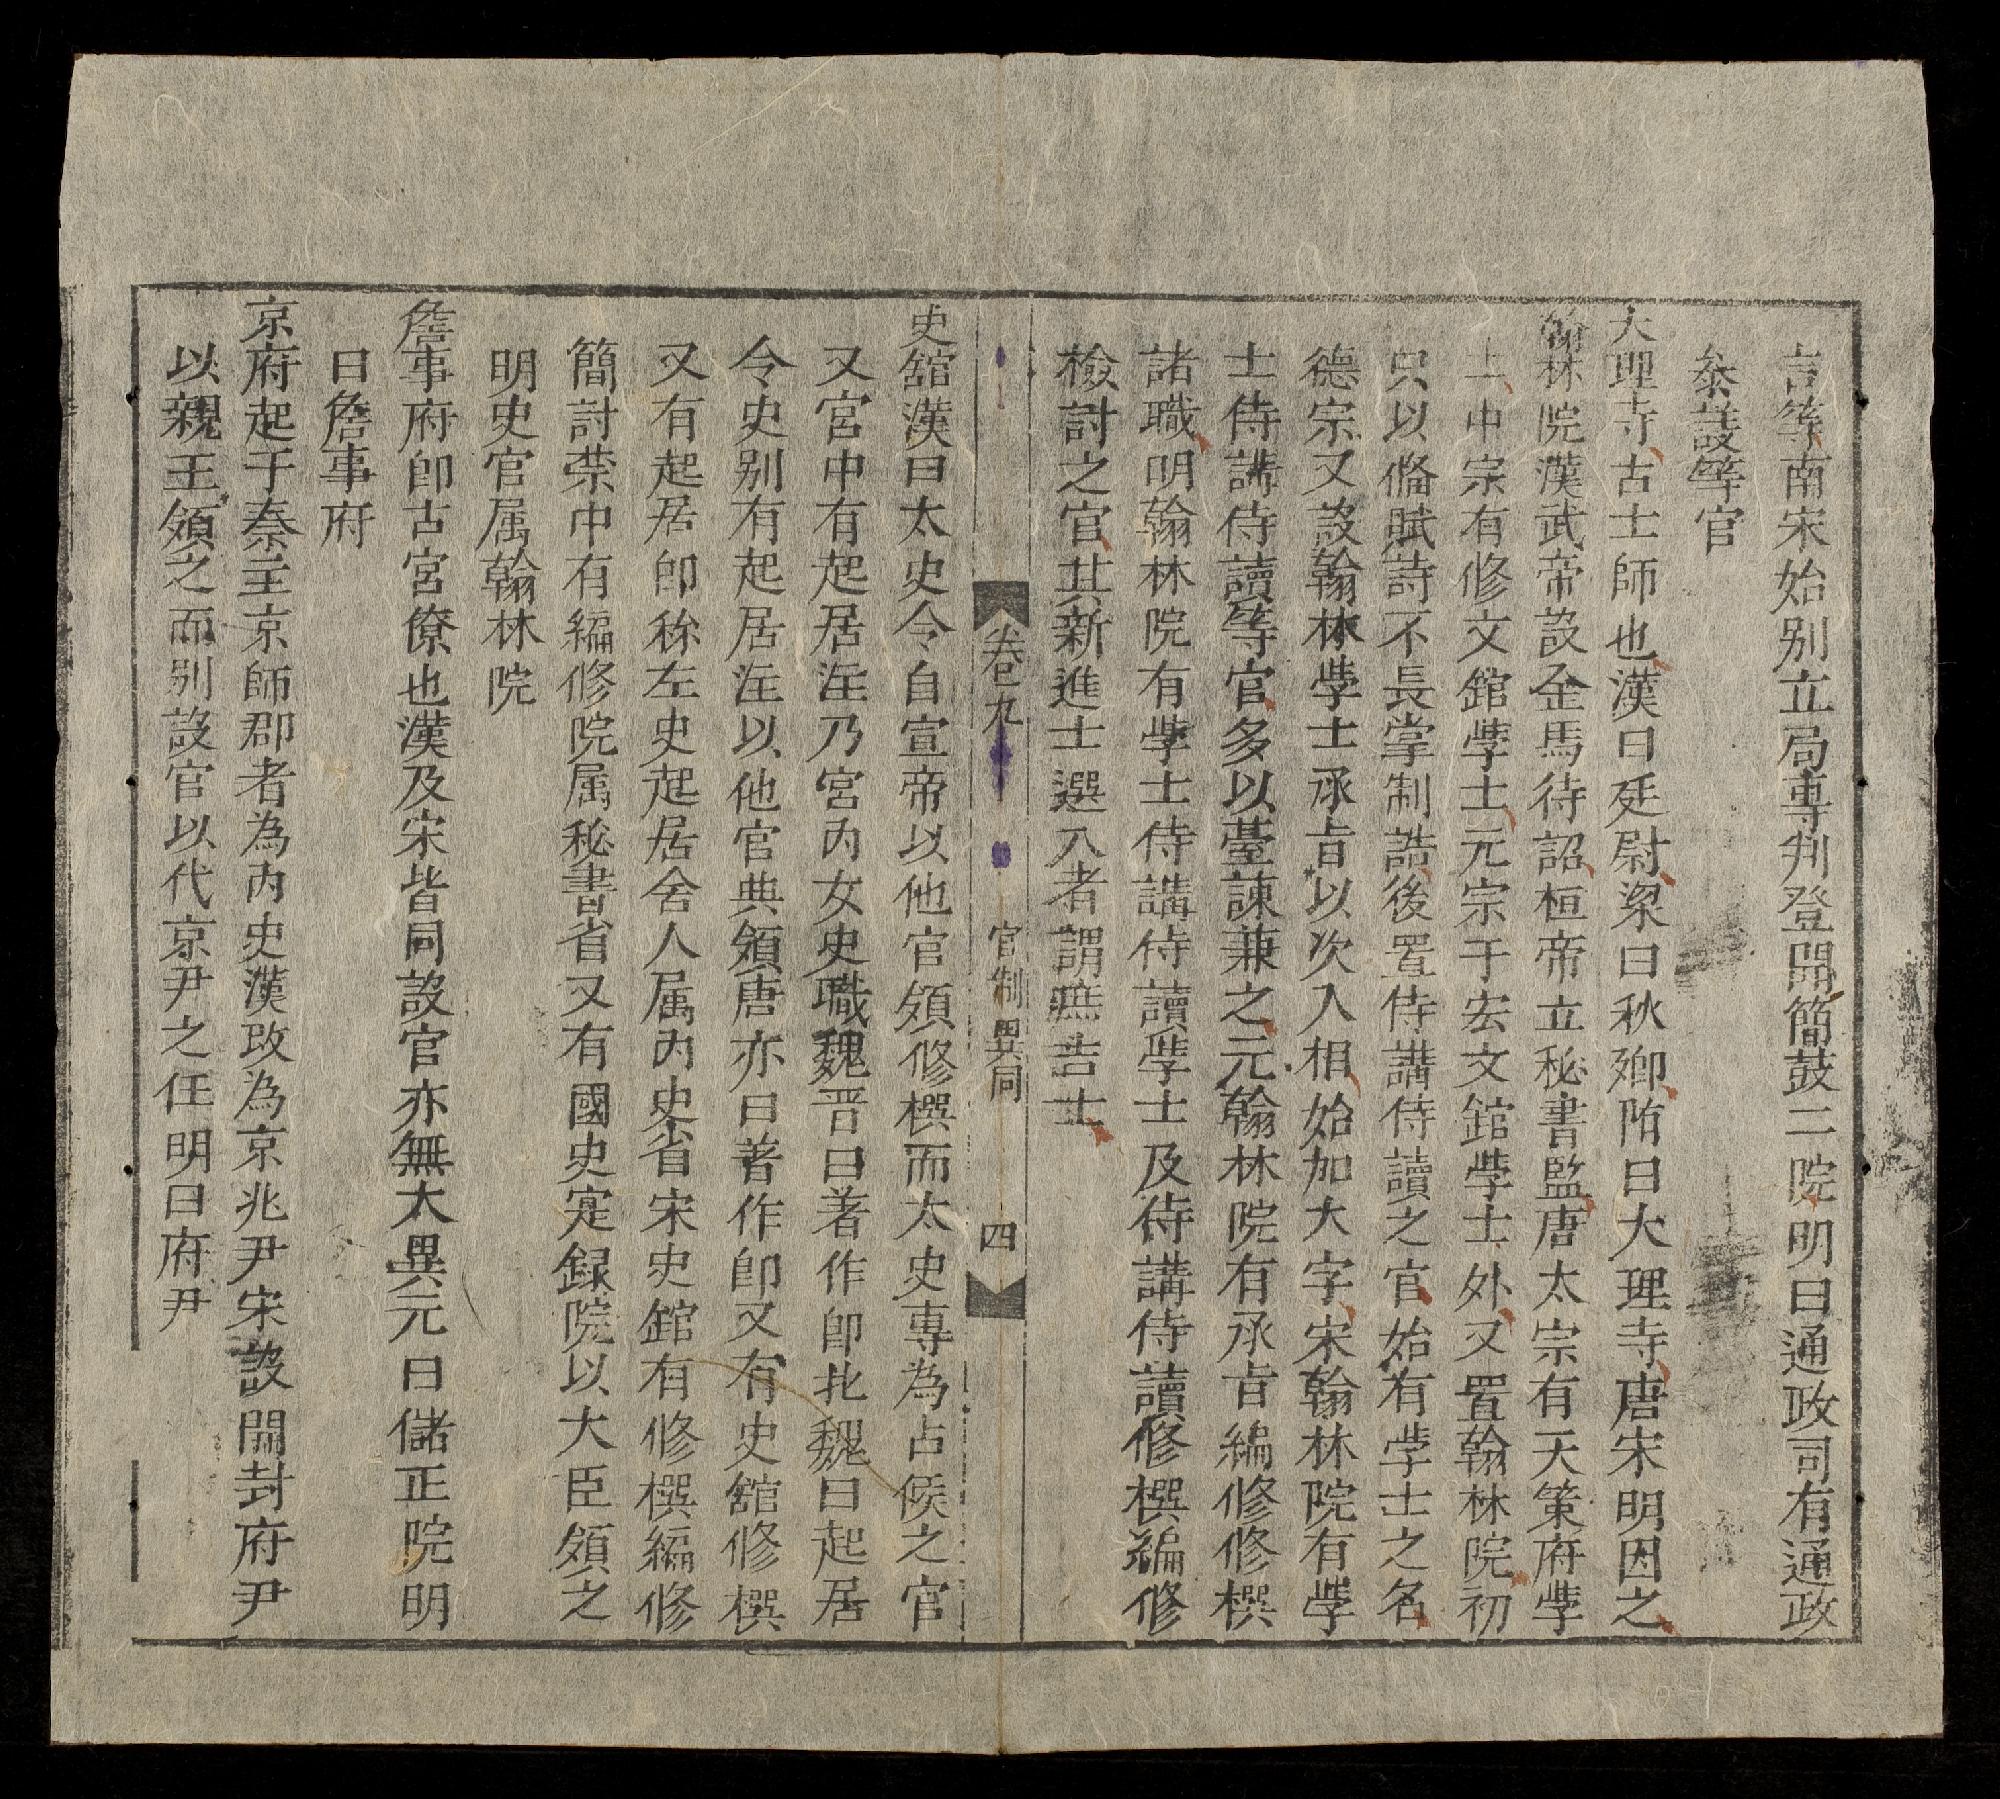 言等南宋始别立局專判登聞簡鼓二院明曰通政司有通政
叅議等官
大理寺古士師也漢曰廷尉梁曰秋卿隋曰大理寺唐宋明因之
翰林院漢武帝設金馬待詔桓帝立秘書監唐太宗有天策府學
士中宗有修文舘學士元宗于宏文舘學士外又置翰林院初
只以俻賦詩不長掌制誥後置侍講侍讀之官始有學士之名
德宗又設翰林學士承旨以次入相始加大字宋翰林院有學
士侍講侍讀等官多以臺諫兼之元翰林院有承旨編修修撰
諸職明翰林院有學士侍講侍讀學士及侍講侍讀修撰編修
檢討之官其新進士選入者謂庶吉士
卷九　官制異同　四
史舘漢曰太史令自宣帝以他官領修撰而太史專為占候之官
又宮中有起居注乃宮內女史職魏晋曰著作郎北魏曰起居
令史别有起居注以他官典領唐亦曰著作郎又有史舘修撰
又有起居郎稱左史起居舍人属內史省宋史舘有修撰編修
簡討禁中有編修院属秘書省又有國史寔録院以大臣領之
明史官属翰林院
詹事府即古宮僚也漢及宋皆同設官亦無太異元曰儲正院明
曰詹事府
京府起于秦主京師郡者為內史漢改為京兆尹宋設開封府尹
以親王領之而别設官以代京尹之任明曰府尹